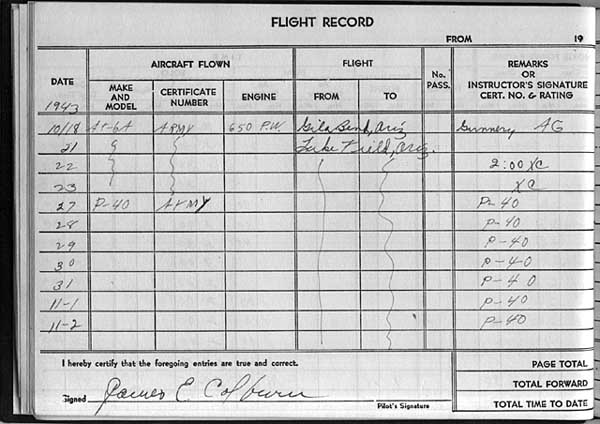 FLIGHT RECORD
FROM 19
DATE AIRCRAFT FLOWN FLIGHT No. PASS. REMARKS OR INSTRUCTOR'S SIGNATURE CERT. NO. & RATING
MAKE AND MODEL CERTIFICATE NUMBER ENGINE FROM TO
1943
10/18 AT-6A ARMY 650 P.W. Gila Bend, Ariz Gunnery AG
21 Luke Field, Ariz.
22 2:00 XC
23 XC
27 P-40 ARMY P-40
28 P-40
29 P-40
30 P-40
31 P-40
11-1 P-40
11-2 P-40
I hereby certify that the foregoing entries are true and correct.
PAGE TOTAL
TOTAL FORWARD
Signed James E. Colburn
Pilot's Signature
TOTAL TIME TO DATE